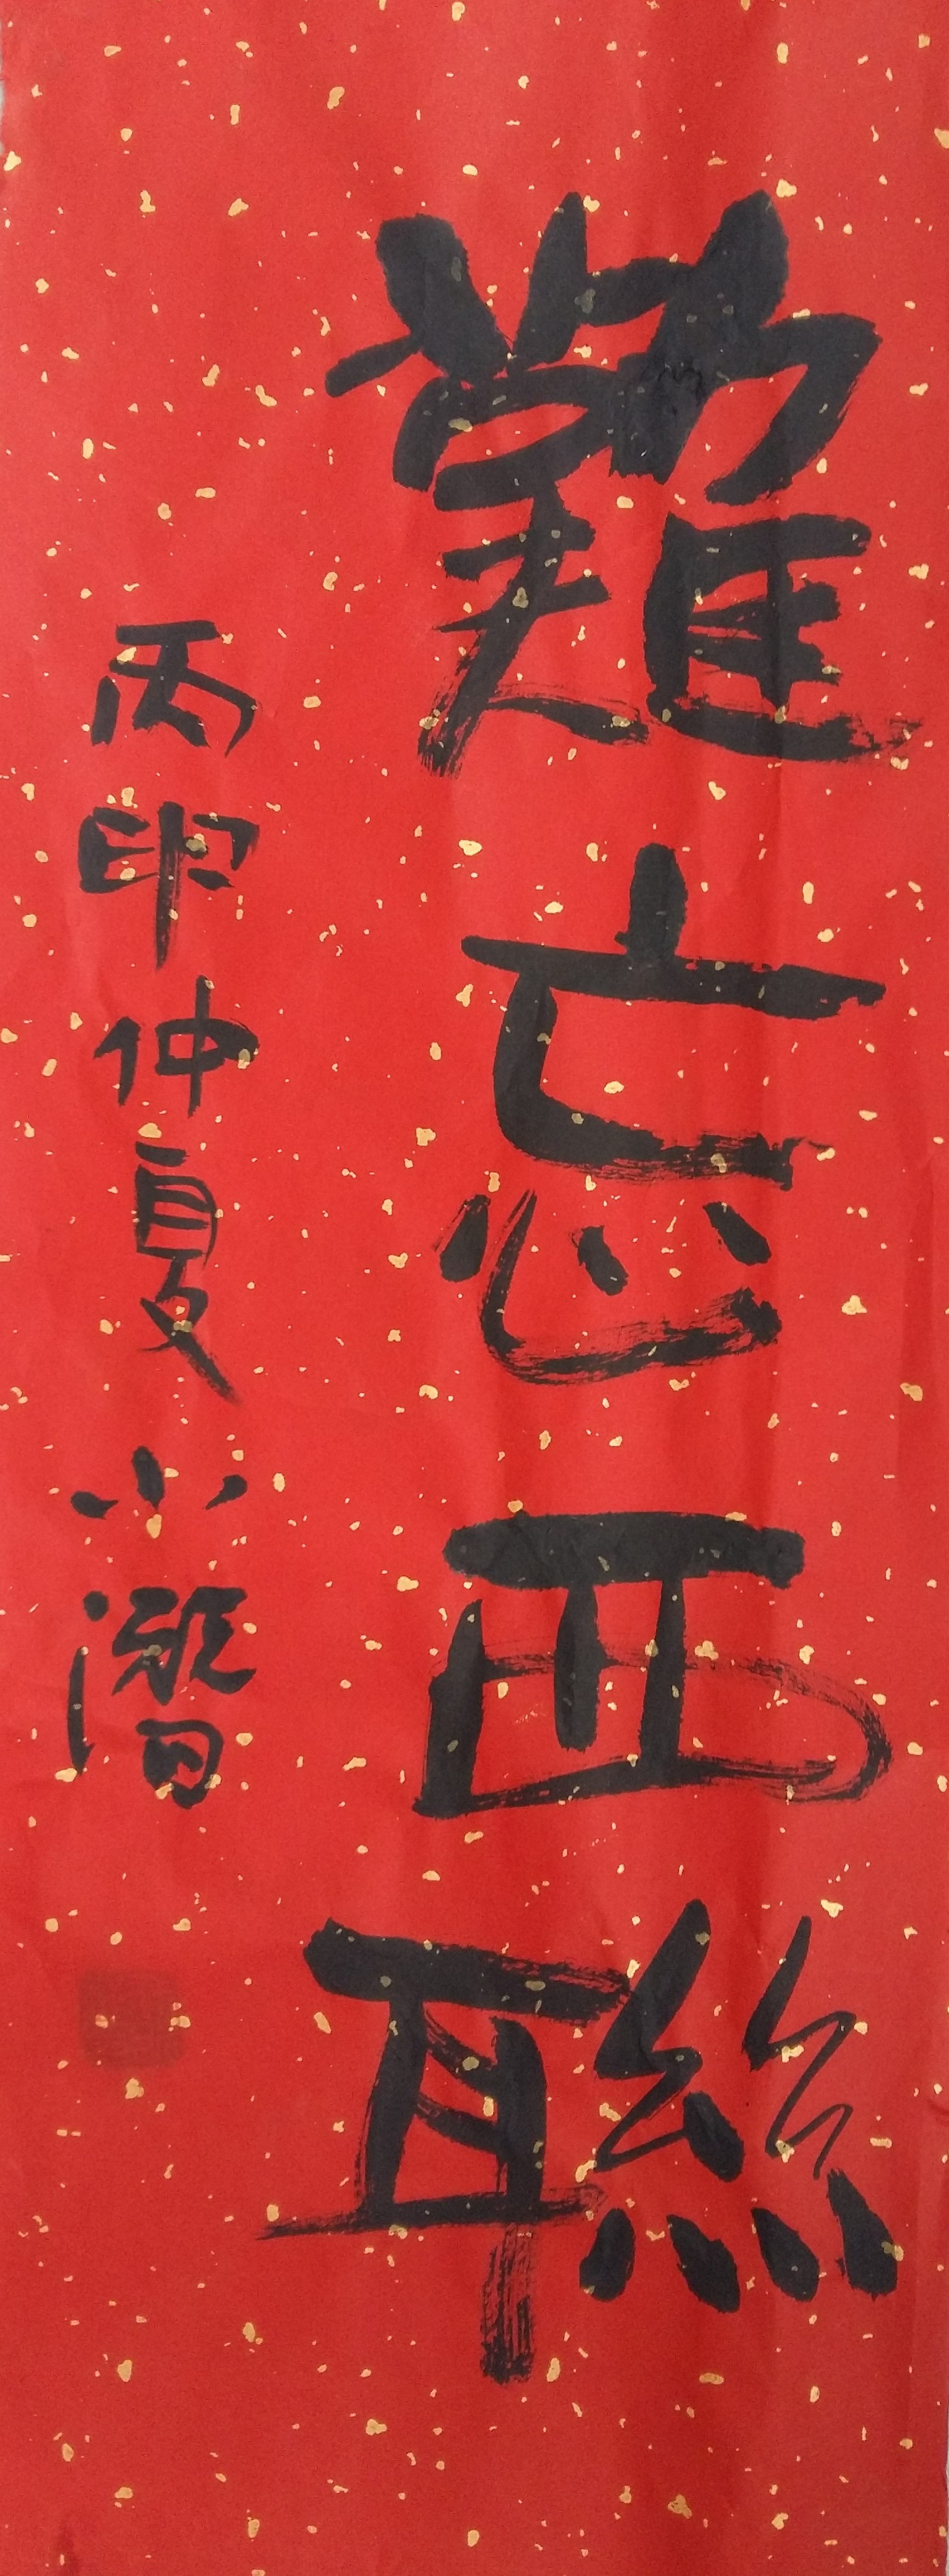 難忘西聯
丙申仲夏小潛